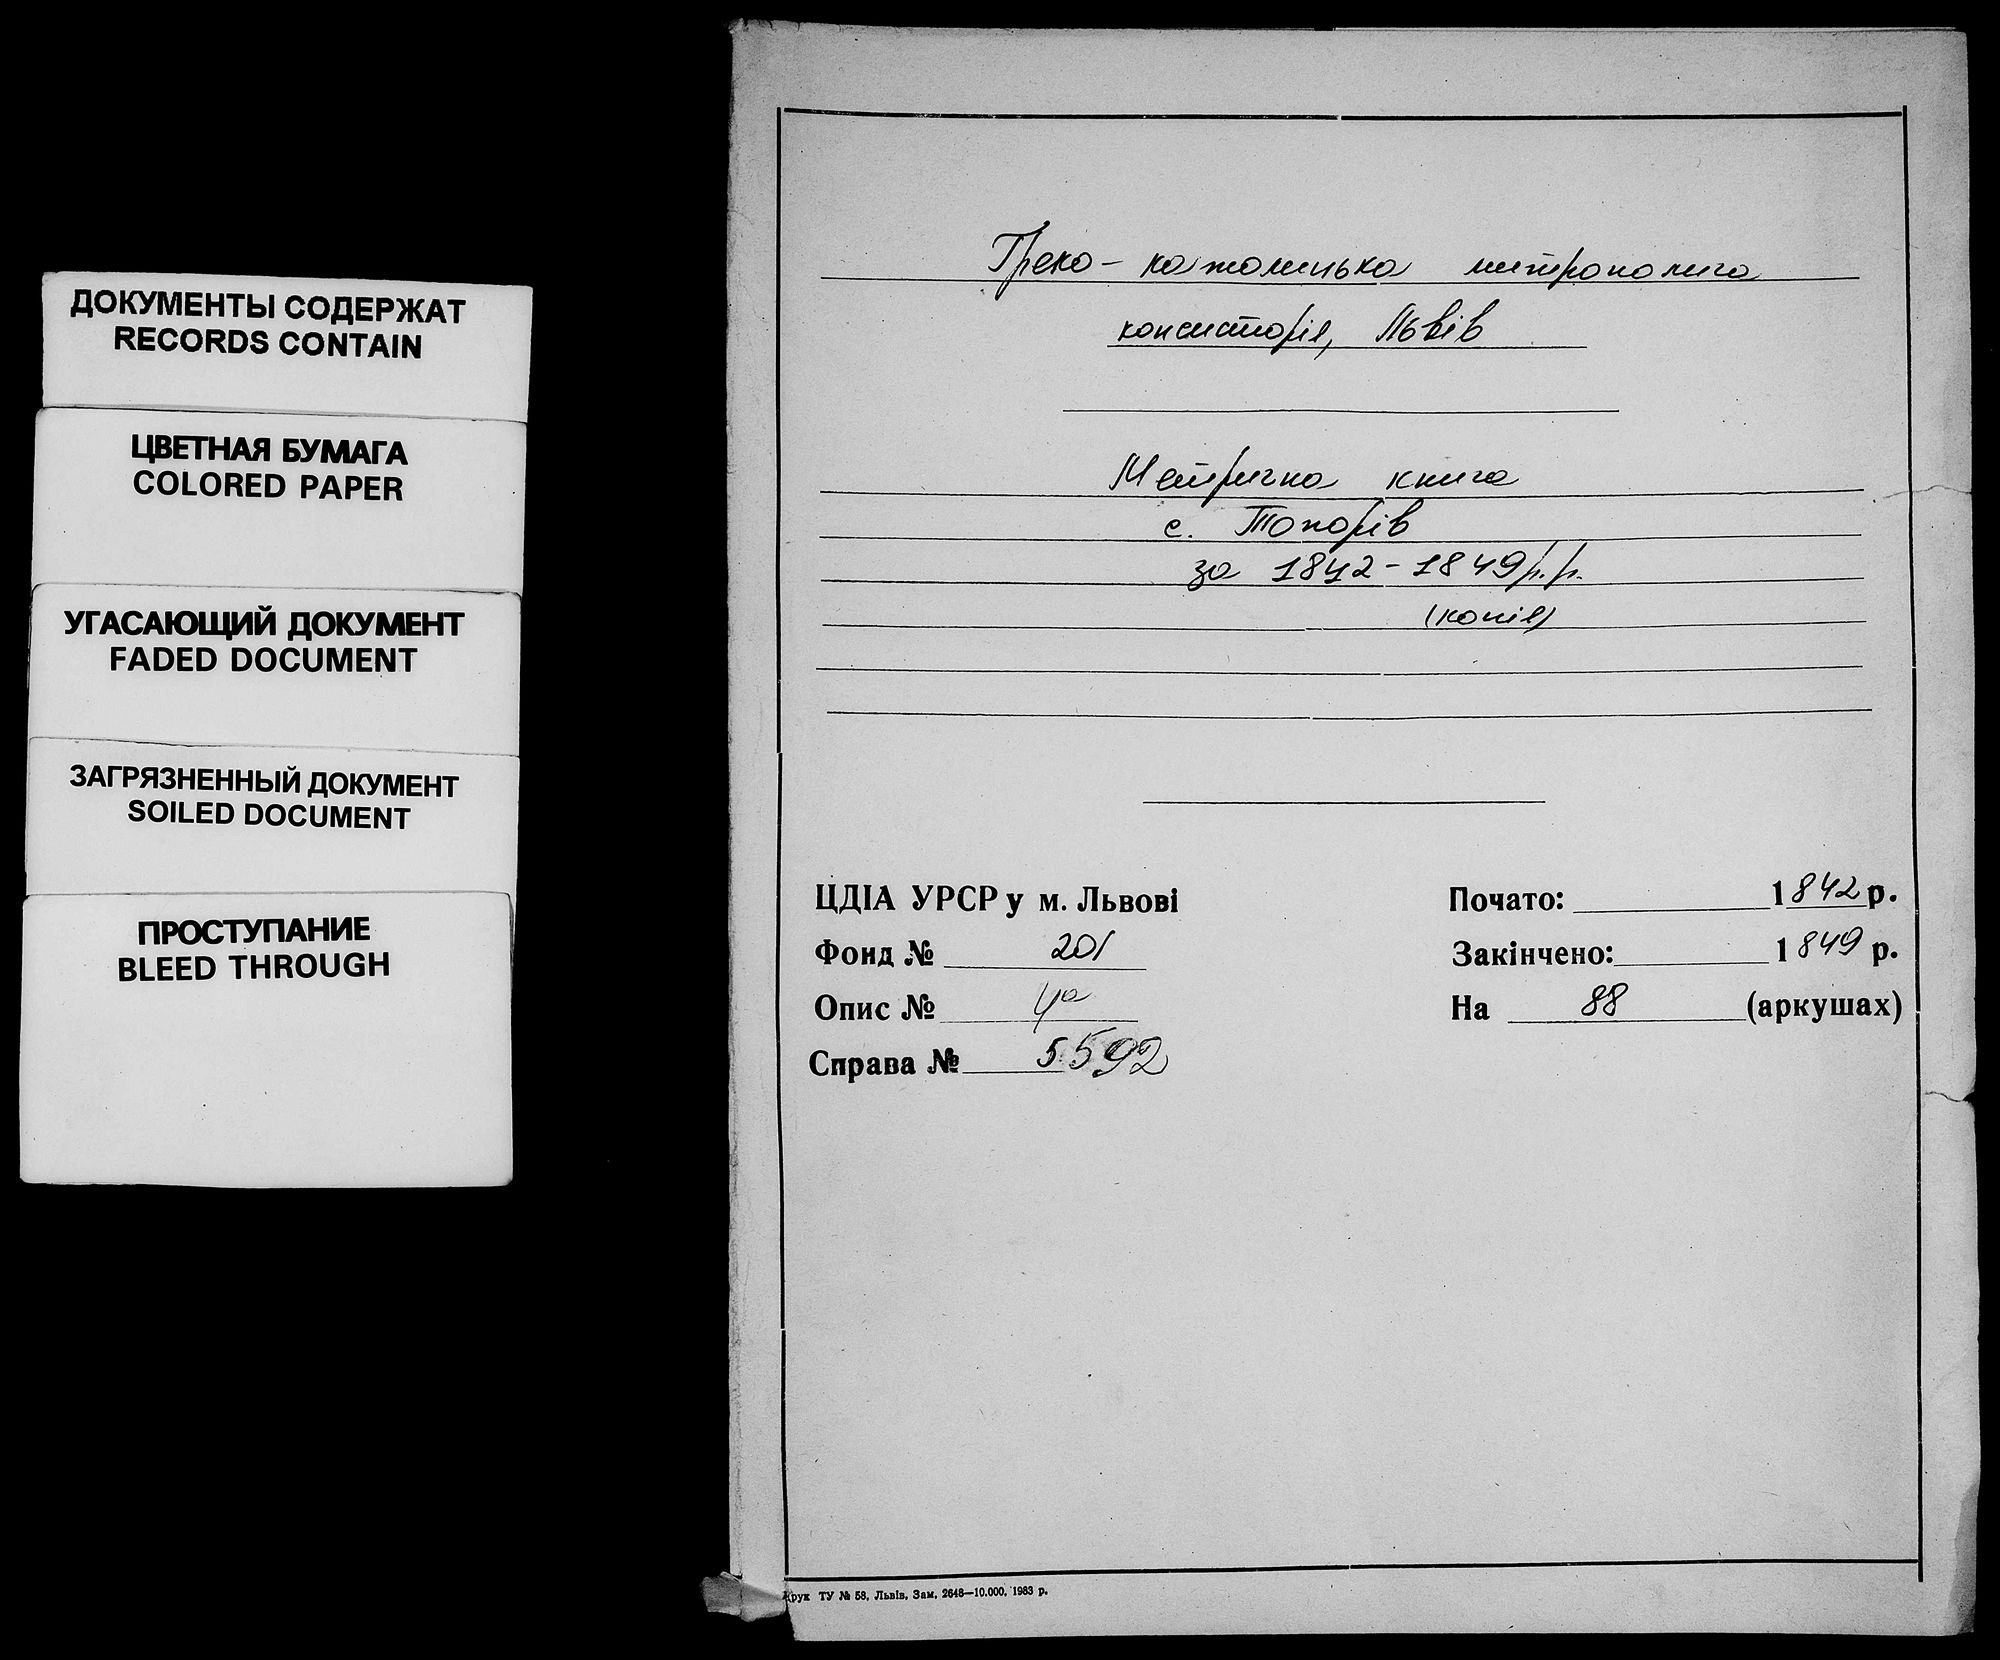 ДОКУМЕНТЫ СОДЕРЖАТ
RECORDS CONTAIN
ЦВЕТНАЯ БУМАГА
COLORED PAPER
УГАСАЮЩИЙ ДОКУМЕНТ
FADED DOCUMENT
ЗАГРЯЗНЕННЫЙ ДОКУМЕНТ
SOILED DOCUMENT
ПРОСТУПАНИЕ
BLEED THROUGH
Греко-католицька митрополича
консисторія, Львів
Метрична книга
с. Топорів
за 1842-1849 р.р.
(копія)
ЦДІА УРСР у м. Львові
Фонд № 201
Опис № 4а
Справа № 5592
Почато: 1842 р.
Закінчено: 1849 р.
На 88 (аркушах)
Друк ТУ № 58, Львів, Зам. 2648—10.000. 1983 р.